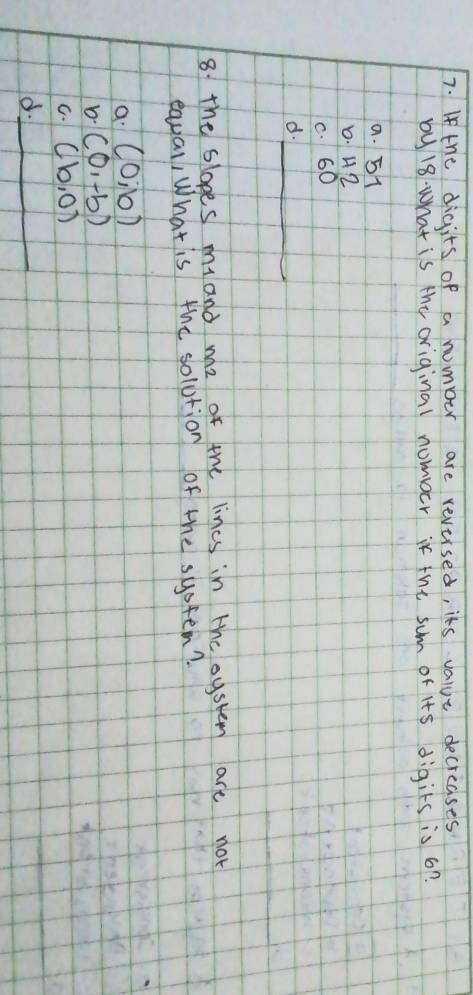 7. If the digits of a number are reversed, its value decreases
by 18. What is the original number if the sum of its digits is 6?
a. 51
b. 42
c. 60
d.
8. the slopes m1 and m2 of the lines in the system are not
equal, What is the solution of the system?
a. (0,b)
b. (0,-b)
c. (b,0)
d.